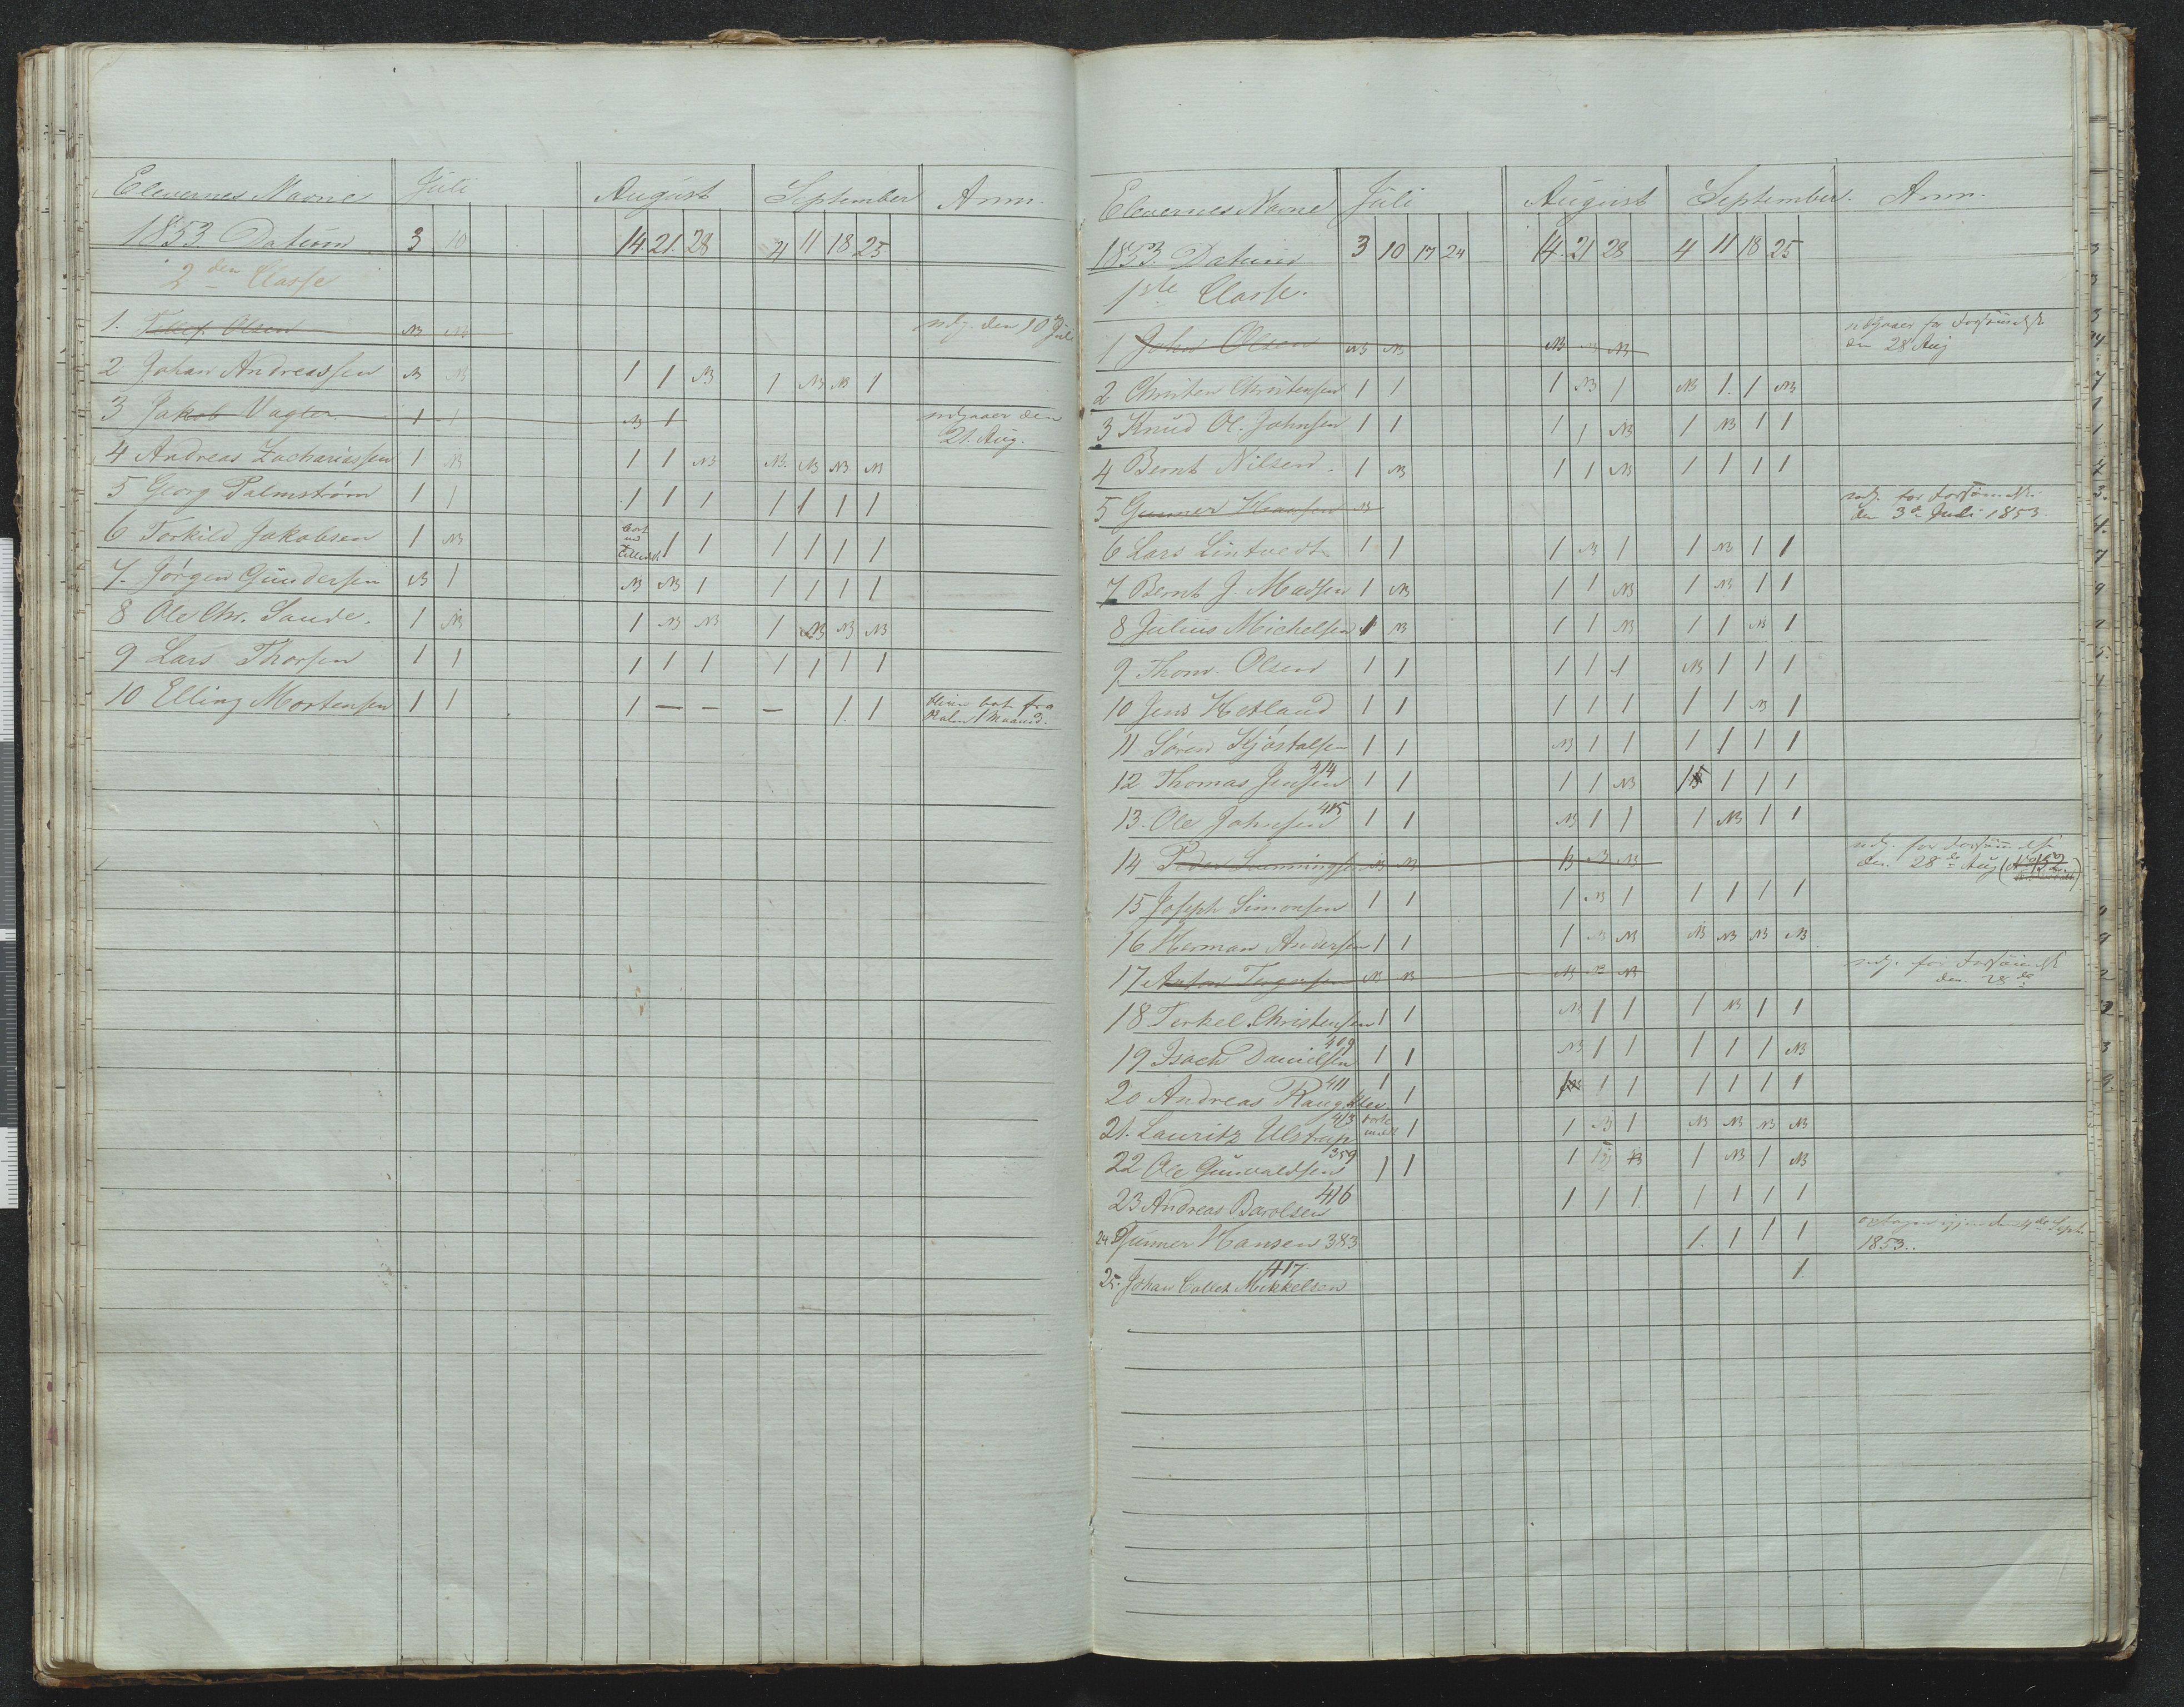 Elevernes Navne Juli August September Anm.
1853 Datum 3 10 14. 21. 28 4 11 18 25
2den Classe
1. Tellef Olsen NB NB udg. den 10de Juli
2 Johan Andreassen NB NB 1 1 NB 1 NB NB 1
3 Jakob Vagler 1 1 NB 1 udgaaer den
21. Aug.
4 Andreas Zachariassen 1 NB 1 1 NB NB. NB NB NB
5 Georg Palmstrøm 1 1 1 1 1 1 1 1 1
6 Torkild Jakobsen 1 NB 1 1 1 1 1 1
7. Jørgen Gundersen NB 1 NB NB 1 1 1 1 1
8 Ole Chr. Sande. 1 NB 1 NB NB 1 NB NB NB
9 Lars Thorsen 1 1 1 1 1 1 1 1 1
10 Elling Mortensen 1 1 1 — — — 1. 1 bliver bort fra
Skolen 1 Maaned.
Elevernes Navne Juli August September. Anm.
1853. Datum 3 10 17 24 14. 21 28 4 11 18 25
1ste Classe.
1 John Olsen NB NB NB NB NB udgaaer for Forsømmelse
den 28 Aug
2 Christen Christensen 1 1 1 NB 1 NB 1. 1 NB
3 Knud Ol. Johnsen 1 1 1 1 NB 1 NB 1 1
4 Bernt Nilsen. 1 NB 1 1 NB 1 1 1 1
5 Gunner Hansen NB udg. for Forsømmelse
den 3de Juli 1853
6 Lars Lintvedt 1 1 1 NB 1 1 NB 1 1
7 Bernt J. Madsen 1 NB 1 1 NB 1 NB 1 1
8 Julius Michelsen 1 NB 1 1 NB 1 1 NB 1
9 Thom. Olsen 1 1 1 1 1 NB 1 1 1
10 Jens Hetland 1 1 1 1 1 1 1 NB 1
11 Søren Kjøstolsen 1 1 NB 1 1 1 1 1 1
12 Thomas Jensen 414 1 1 1 1 NB 1 1 1 1
13. Ole Johnsen 415 1 1 NB 1 1 1 NB 1 1
14 Peder NB NB NB NB NB udg. for Forsømmelse
den 28de Aug
15 Joseph Simonsen 1 1 1 NB 1 1 1 1 1
16 Herman Andersen 1 1 1 NB NB NB NB NB NB
17 Anton Tergersen NB NB NB NB NB udg. for Forsømmelse
den 28de
18 Terkel Christensen 1 1 NB 1 1 1 NB 1 1
19 Isach Danielsen 409 1 1 NB 1 1 1 1 1 NB
20 Andreas 411 1 1 NB 1 1 1 1 1 1
21. Lauritz Ulstrup 413 1 1 NB 1 NB NB NB NB
22 Ole Gunvaldsen 359 1 1 1 NB NB 1 NB 1 NB
23 Andreas Barolsen 416 1 1 1. 1 1 1 1
24 Gunner Hansen 383 1. 1 1 1 optagen igjen den 4de Septr.
1853..
25. Johan Colbet Mikkelsen 417 1.